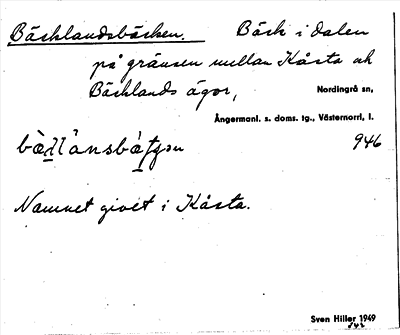 Bäcklandsbäcken. Bäck i dalen
på gränsen mellan Kåsta och
Bäcklands ägor, Nordingrå sn,
Ångermanl. s. doms. tg., Västernorrl. l.
946
Namnet givet i Kåsta.
Sven Hiller 1949